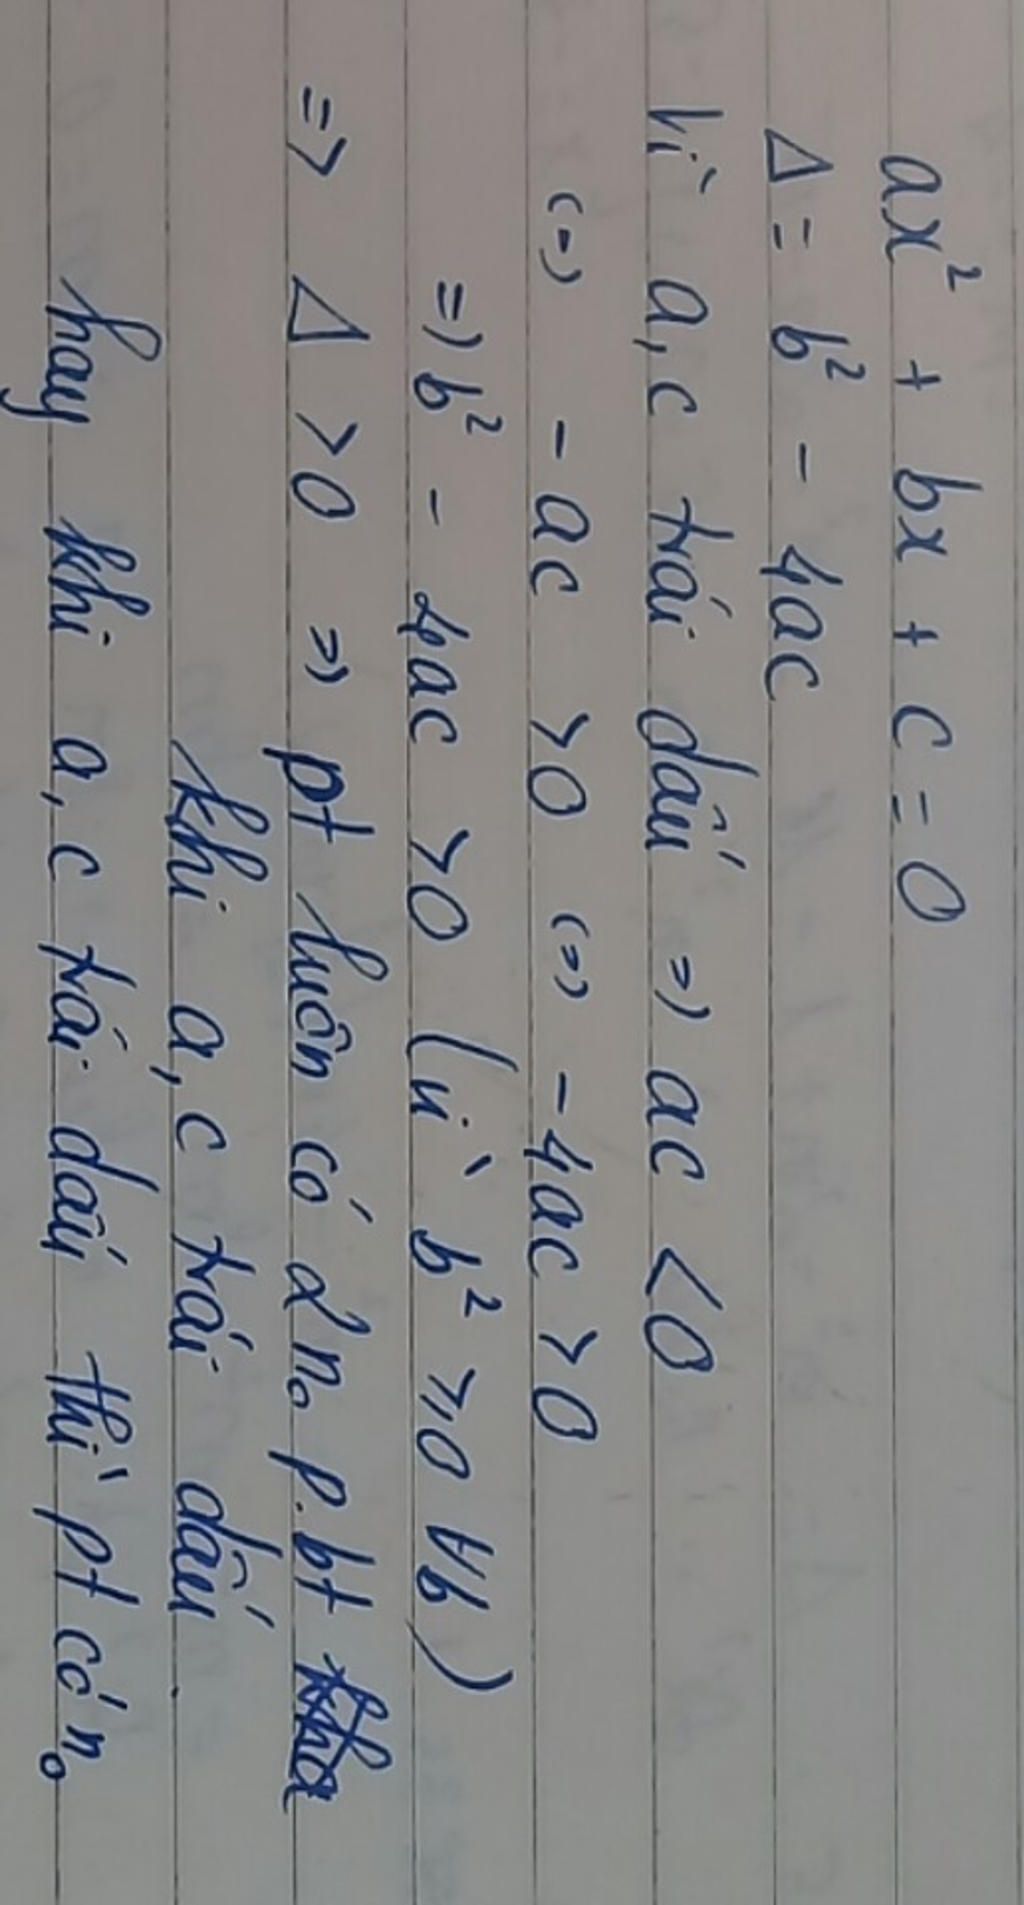 ax² + bx + c = 0
Δ = b² - 4ac
Vì a, c trái dấu => ac < 0
(=) - ac > 0 (=) - 4ac > 0
=) b² - 4ac > 0 (vì b² ≥ 0 ∀b)
=> Δ > 0 => pt luôn có 2 n₀ p.bt
khi a, c trái dấu.
hay khi a, c trái dấu thì pt có n₀